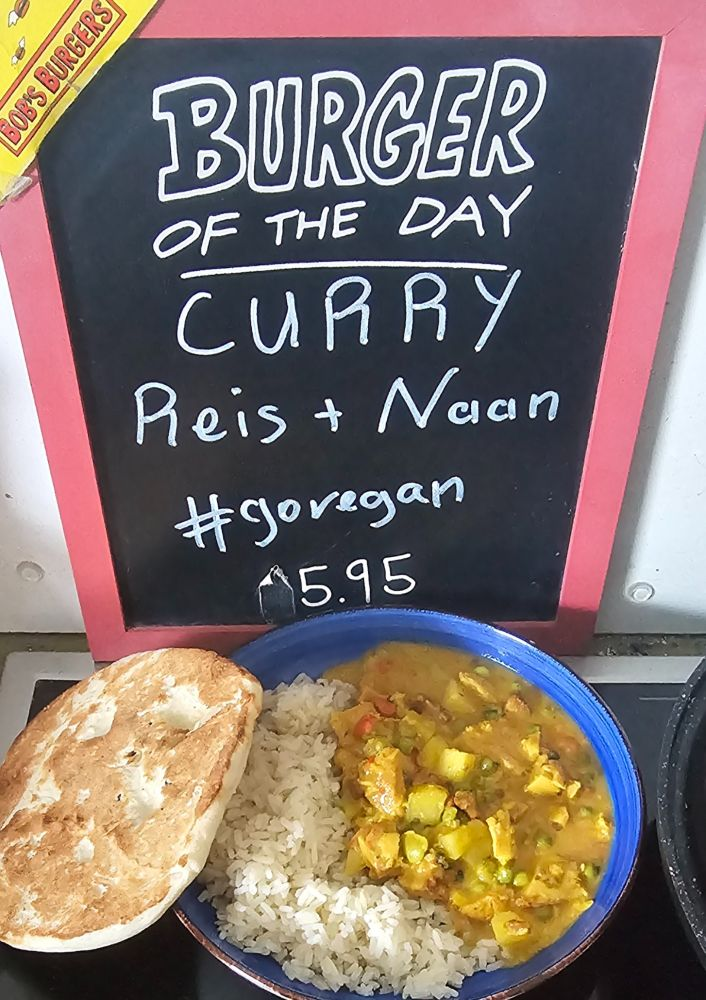 BOB'S BURGERS
BURGER
OF THE DAY
CURRY
Reis + Naan
#govegan
5.95